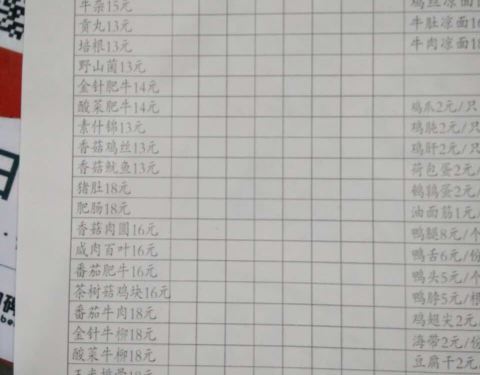 牛杂15元
贡丸13元
培根13元
野山菌13元
金针肥牛14元
酸菜肥牛14元
素什锦13元
香菇鸡丝13元
香菇鱿鱼13元
猪肚18元
肥肠18元
香菇肉圆16元
咸肉百叶16元
番茄肥牛16元
茶树菇鸡块16元
番茄牛肉18元
金针牛柳18元
酸菜牛柳18元
鸡丝凉面
牛肚凉面
牛肉凉面18
鸡爪2元/只
鸡肫2元/只
鸡肝2元/只
荷包蛋2元/
鹌鹑蛋2元/
油面筋1元/
鸭腿8元/个
鸭舌6元/份
鸭头5元/个
鸭脖5元/根
鸡翅尖2元/
海带2元/份
豆腐干2元/